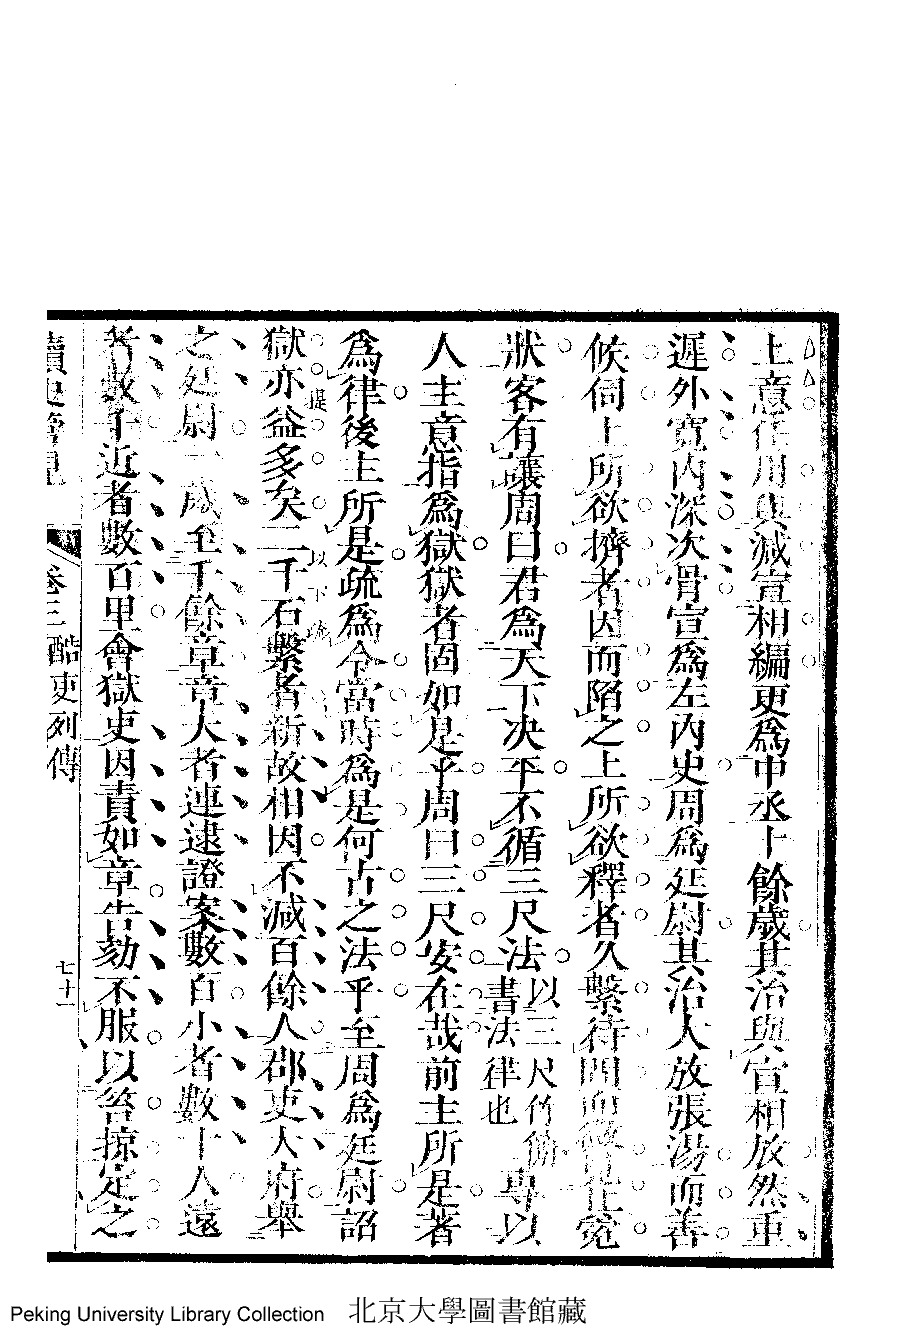 上意任用與減宣相編更爲中丞十餘歲其治與宣相放然重
遲外寬內深次骨宣爲左內史周爲廷尉其治大放張湯而善
候伺上所欲擠者因而陷之上所欲釋者久繫待問而微見其冤
狀客有讓周曰君爲天下决平不循三尺法以三尺竹簡書法律也專以
人主意指爲獄獄者固如是乎周曰三尺安在哉前主所是著
爲律後主所是疏爲令當時爲是何古之法乎至周爲廷尉詔
獄亦益多矣二千石繫者新故相因不減百餘人郡吏大府舉
之廷尉一歲至千餘章章大者連逮證案數百小者數十人遠
者數千近者數百里會獄吏因責如章告劾不服以笞掠定之
讀史管見
卷三酷吏列傳
七十一
提
以下疏
Peking University Library Collection 北京大學圖書館藏